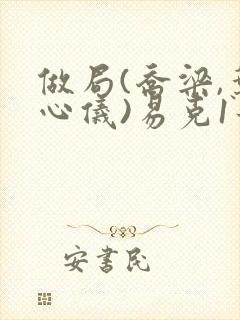 做局(乔梁,
心仪)易克1
安书民